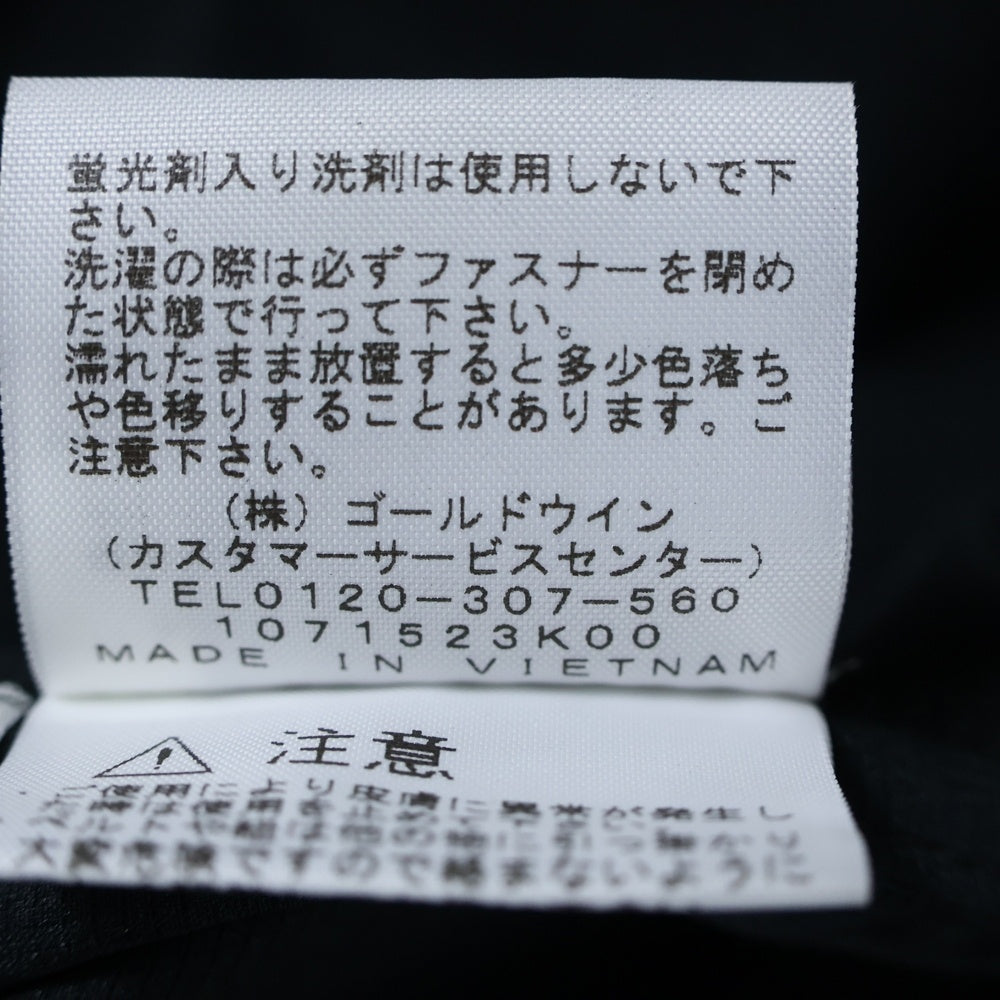 蛍光剤入り洗剤は使用しないで下
さい。
洗濯の際は必ずファスナーを閉め
た状態で行って下さい。
濡れたまま放置すると多少色落ち
や色移りすることがあります。ご
注意下さい。
(株) ゴールドウイン
(カスタマーサービスセンター)
TEL0120-307-560
1071523K00
MADE IN VIETNAM
注意
ですので絡まないように